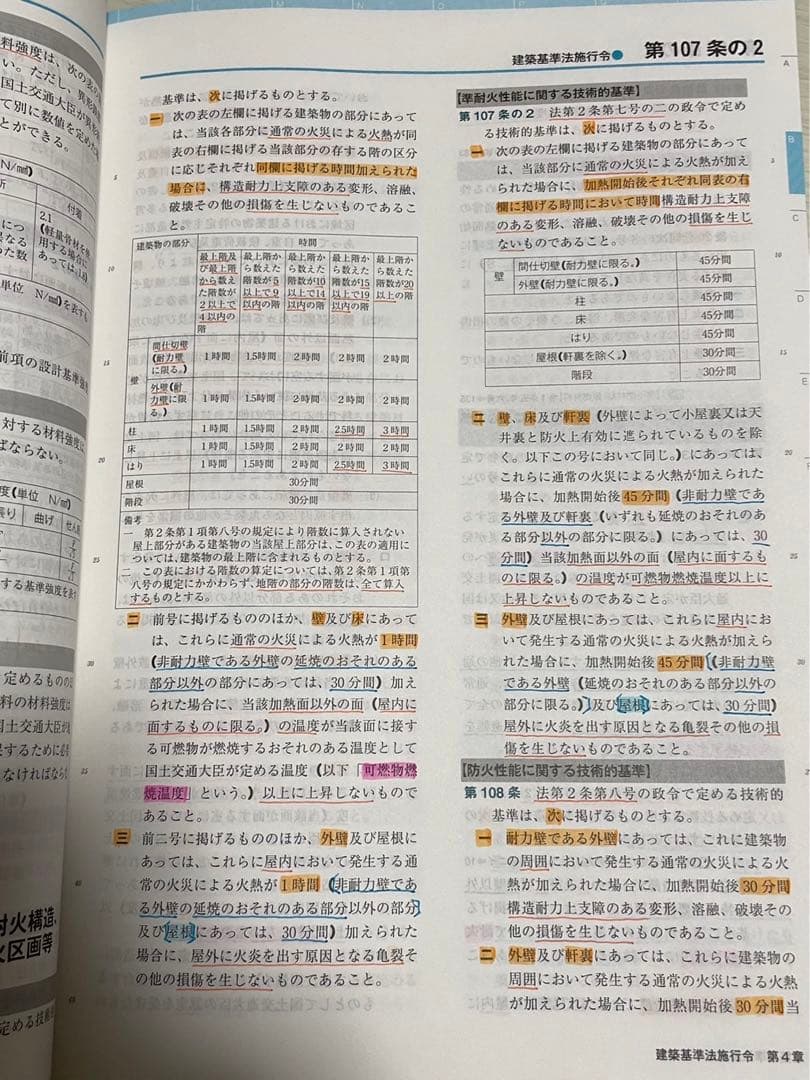 建築基準法施行令● 第107条の2
料強度は、次の表の
い。ただし、異形鉄
国土交通大臣が異形
て別に数値を定めた
とができる。
N/㎟)
所 付着
2.1
(軽量骨材を使
用する場合に
あっては、1.8)
単位 N/㎟)を表する
前項の設計基準強
対する材料強度は
ばならない。
度(単位 N/㎟)
曲げ せん断
する基準強度を表す
定めるものの
料の材料強度は
国土交通大臣が
保するために必
なければならな
耐火構造、
火区画等
定める技術
基準は、次に掲げるものとする。
一 次の表の左欄に掲げる建築物の部分にあって
は、当該各部分に通常の火災による火熱が同
表の右欄に掲げる当該部分の存する階の区分
に応じそれぞれ同欄に掲げる時間加えられた
場合に、構造耐力上支障のある変形、溶融、
破壊その他の損傷を生じないものであるこ
と。
建築物の部分 時間
最上階及び最上階から数えた階数が2以上で4以内の階 最上階から数えた階数が5以上で9以内の階 最上階から数えた階数が10以上で14以内の階 最上階から数えた階数が15以上で19以内の階 最上階から数えた階数が20以上の階
壁 間仕切壁(耐力壁に限る。) 1時間 1.5時間 2時間 2時間 2時間
外壁(耐力壁に限る。) 1時間 1.5時間 2時間 2時間 2時間
柱 1時間 1.5時間 2時間 2.5時間 3時間
床 1時間 1.5時間 2時間 2時間 2時間
はり 1時間 1.5時間 2時間 2.5時間 3時間
屋根 30分間
階段 30分間
備考
一 第2条第1項第八号の規定により階数に算入されない
屋上部分がある建築物の当該屋上部分は、この表の適用に
ついては、建築物の最上階に含まれるものとする。
二 この表における階数の算定については、第2条第1項第
八号の規定にかかわらず、地階の部分の階数は、全て算入
するものとする。
二 前号に掲げるもののほか、壁及び床にあって
は、これらに通常の火災による火熱が1時間
(非耐力壁である外壁の延焼のおそれのある
部分以外の部分にあっては、30分間)加え
られた場合に、当該加熱面以外の面(屋内に
面するものに限る。)の温度が当該面に接す
る可燃物が燃焼するおそれのある温度として
国土交通大臣が定める温度(以下「可燃物燃
焼温度」という。)以上に上昇しないもので
あること。
三 前二号に掲げるもののほか、外壁及び屋根に
あっては、これらに屋内において発生する通
常の火災による火熱が1時間(非耐力壁であ
る外壁の延焼のおそれのある部分以外の部分
及び屋根にあっては、30分間)加えられた
場合に、屋外に火炎を出す原因となる亀裂そ
の他の損傷を生じないものであること。
【準耐火性能に関する技術的基準】
第107条の2 法第2条第七号の二の政令で定め
る技術的基準は、次に掲げるものとする。
一 次の表の左欄に掲げる建築物の部分にあって
は、当該部分に通常の火災による火熱が加え
られた場合に、加熱開始後それぞれ同表の右
欄に掲げる時間において構造耐力上支障
のある変形、溶融、破壊その他の損傷を生じ
ないものであること。
壁 間仕切壁(耐力壁に限る。) 45分間
外壁(耐力壁に限る。) 45分間
柱 45分間
床 45分間
はり 45分間
屋根(軒裏を除く。) 30分間
階段 30分間
二 壁、床及び軒裏(外壁によって小屋裏又は天
井裏と防火上有効に遮られているものを除
く。以下この号において同じ。)にあっては、
これらに通常の火災による火熱が加えられた
場合に、加熱開始後45分間(非耐力壁であ
る外壁及び軒裏(いずれも延焼のおそれのあ
る部分以外の部分に限る。)にあっては、30
分間)当該加熱面以外の面(屋内に面するも
のに限る。)の温度が可燃物燃焼温度以上に
上昇しないものであること。
三 外壁及び屋根にあっては、これらに屋内にお
いて発生する通常の火災による火熱が加えら
れた場合に、加熱開始後45分間(非耐力壁
である外壁(延焼のおそれのある部分以外の
部分に限る。)及び屋根にあっては、30分間)
屋外に火炎を出す原因となる亀裂その他の損
傷を生じないものであること。
【防火性能に関する技術的基準】
第108条 法第2条第八号の政令で定める技術的
基準は、次に掲げるものとする。
一 耐力壁である外壁にあっては、これに建築物
の周囲において発生する通常の火災による火
熱が加えられた場合に、加熱開始後30分間
構造耐力上支障のある変形、溶融、破壊その
他の損傷を生じないものであること。
二 外壁及び軒裏にあっては、これらに建築物の
周囲において発生する通常の火災による火熱
が加えられた場合に、加熱開始後30分間当
建築基準法施行令 第4章